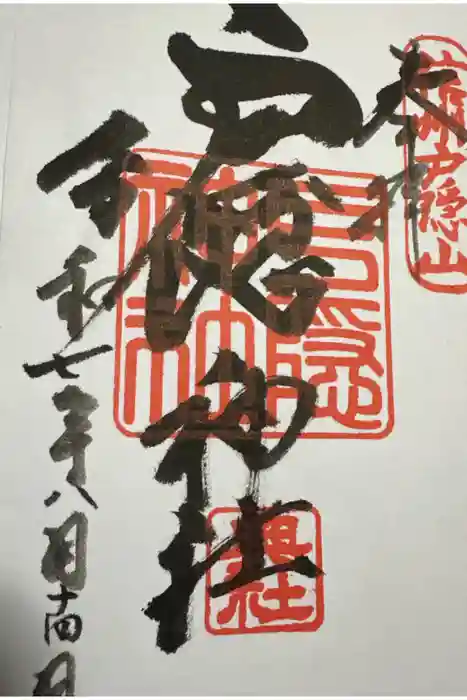 奉拝
戸隠山
戸隠神社
戸隠神社
奥社
令和七年八月十四日